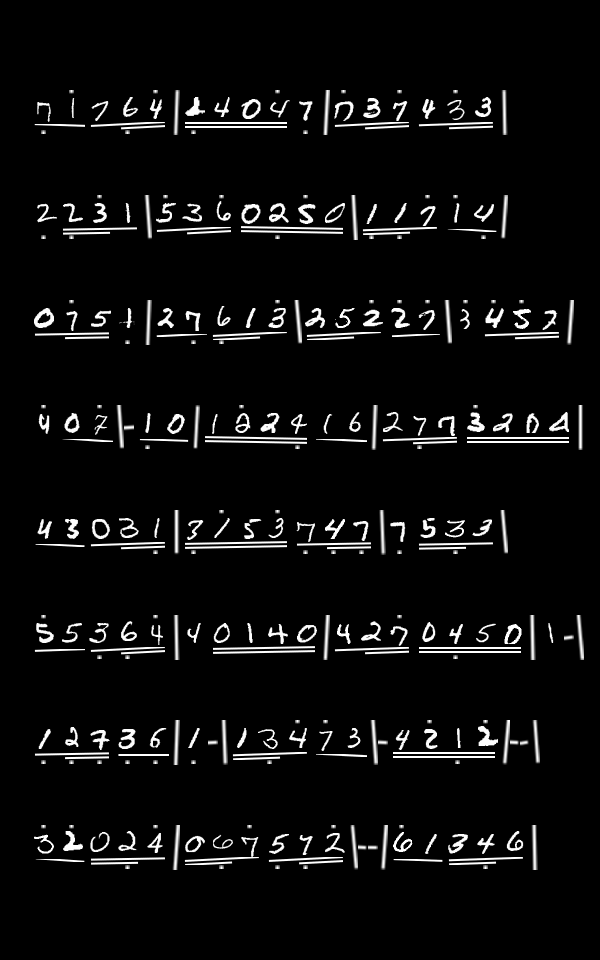 7 1 7 6 4 | 1 4 0 4 7 | 7 3 7 4 3 3 |
2 2 3 1 | 5 3 6 0 2 5 0 | 1 1 7 1 4 |
0 7 5 1 | 2 7 6 1 3 | 2 5 2 2 7 | 3 4 5 7 |
4 0 7 | - 1 0 | 1 2 2 4 1 6 | 2 7 7 3 2 0 2 |
4 3 0 3 1 | 3 1 5 3 7 4 7 | 7 5 3 3 |
5 5 3 6 4 | 4 0 1 4 0 | 4 2 7 0 4 5 0 | 1 - |
1 2 7 3 6 | 1 - | 1 3 4 7 3 | - 4 2 1 2 | - - |
3 2 0 2 4 | 0 6 7 5 7 2 | - - | 6 1 3 4 6 |